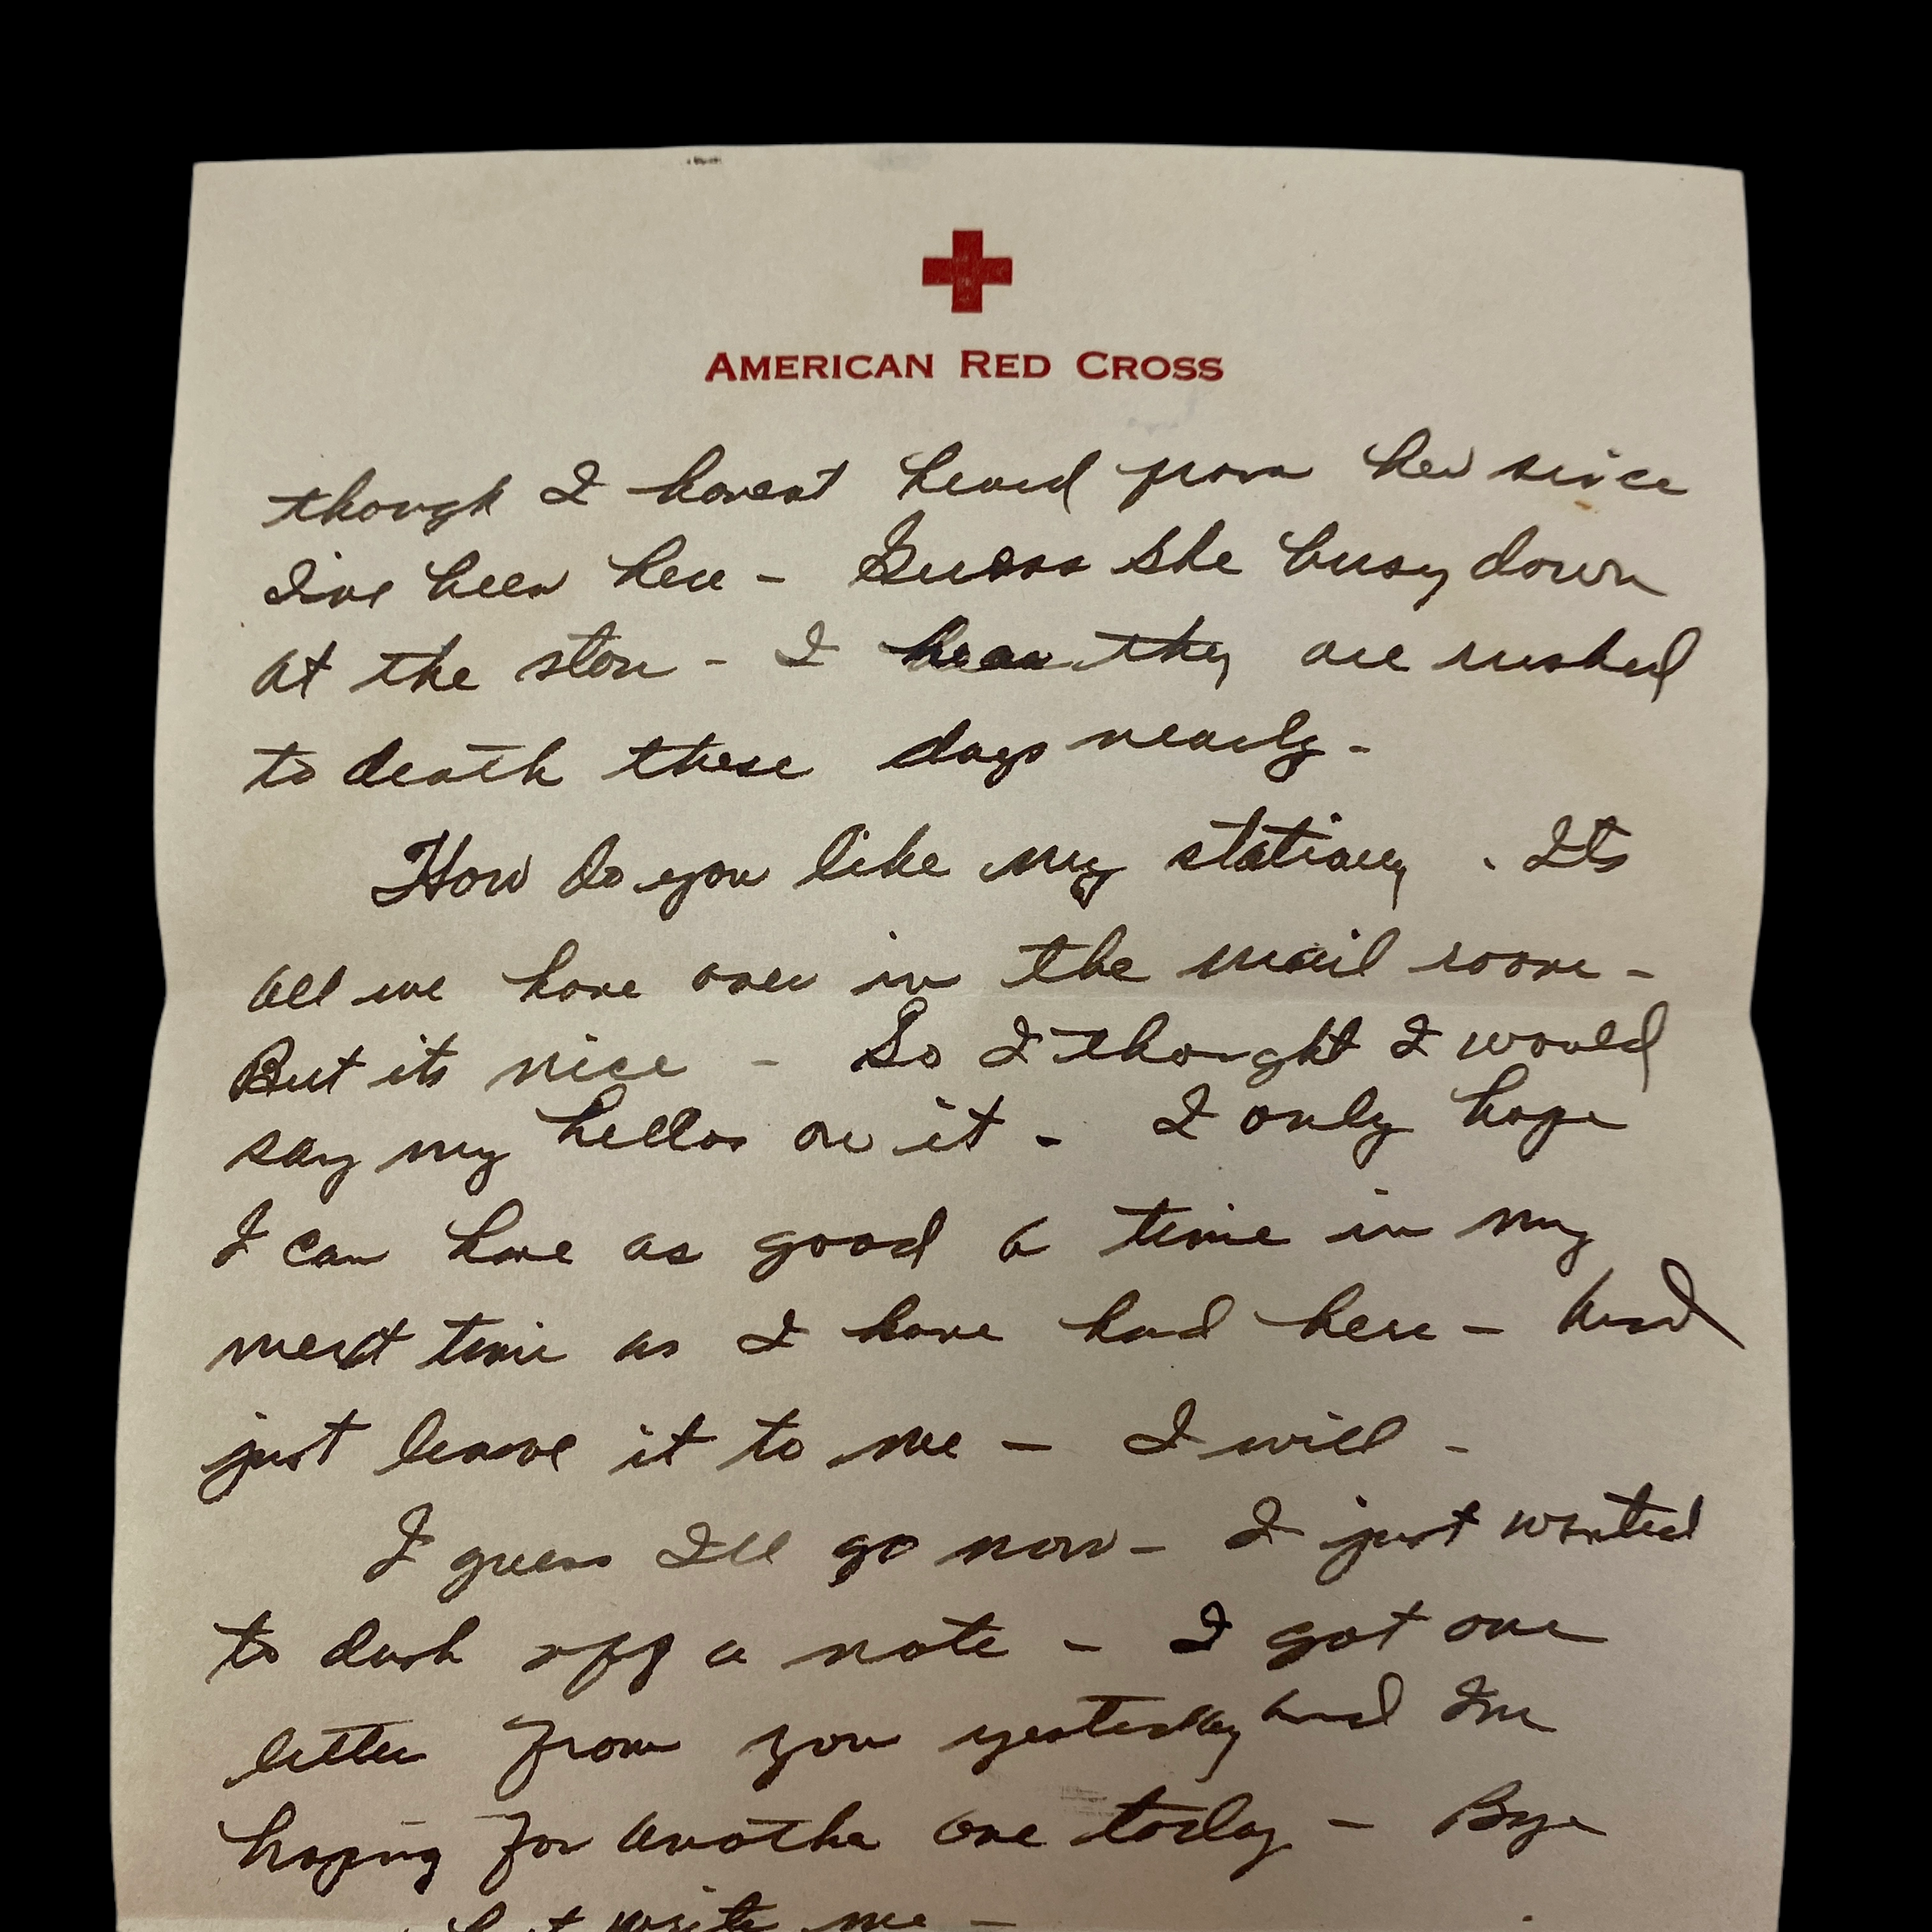 AMERICAN RED CROSS
though I havent heard from her since
I've been here - Guess She busy down
at the store - I hear they are rushed
to death these days nearly -
How do you like my stationery . Its
all we have over in the mail room -
But its nice - So I thought I would
say my hellos on it - I only hope
I can have as good a time in my
next time as I have had here - And
just leave it to me - I will -
I guess I'll go now - I just wanted
to dash off a note - I got one
letter from you yesterday and Im
hoping for another one today - Bye
write me -